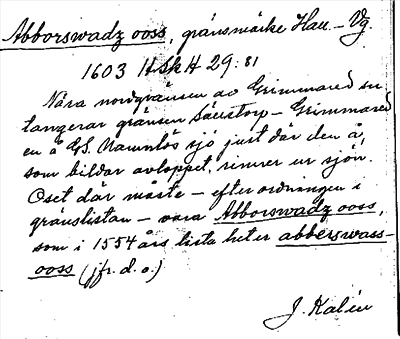 Abborswadz ooss, gränsmärke Hall.-Vg.
1603 HSkH 29:81
Nära nordgränsen av Grimmared su
tangerar gränsen Säustorp-Grimmared
en å GS. Namnlös sjö just där den å,
som bildar avloppet, rinner ur sjön.
Oset där måste - efter ordningen i
gränslistan - vara Abborswadz ooss,
som i 1554 års lista heter abberswass-
ooss (jfr. d. o.)
J. Kalén